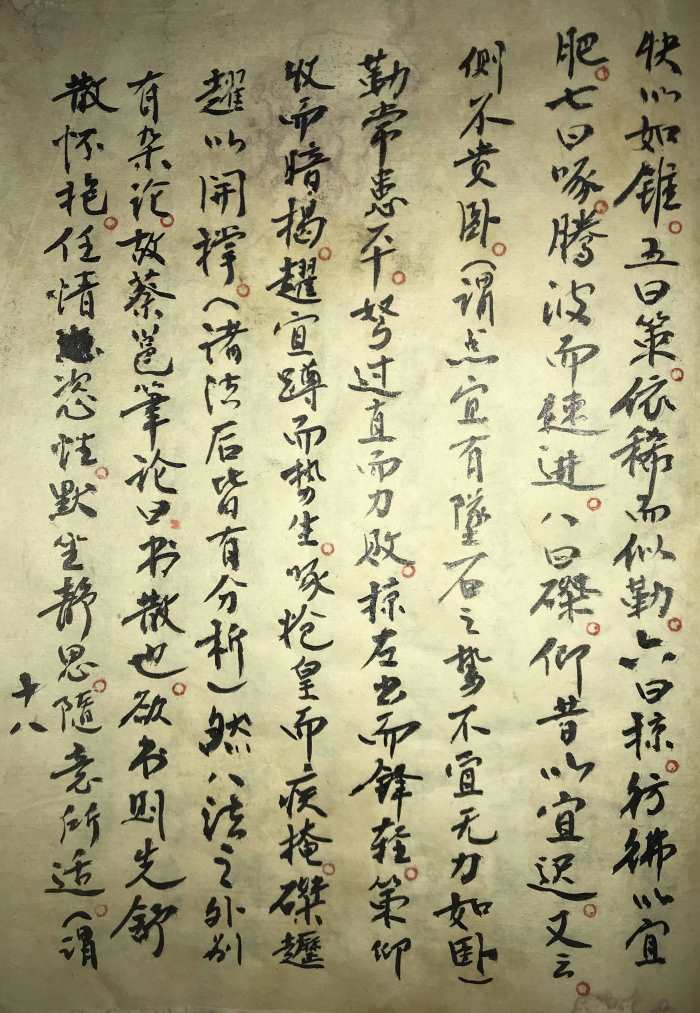 快以如锥。五曰策。依稀而似勒。六曰掠。彷彿以宜
肥。七曰啄。腾波而速进。八曰磔。仰昔以宜迟。又云。
侧不贵卧。（谓点宜有墜石之势不宜无力如卧）
勒常患平。弩过直而力败。掠左出而锋轻。策仰
收而暗揭。趯宜蹲而势生。啄抢皇而疾掩。磔趯
趯以开撑。（诸法后皆有分析）然八法之外别
有杂论。故蔡邕筆论曰。书散也。欲书则先舒
散怀抱。任情恣性。默坐静思。隨意所适。（谓
十八